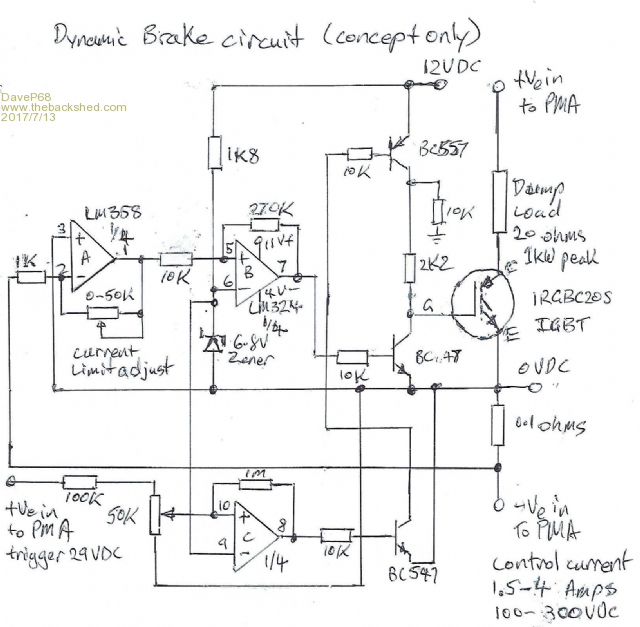 Dynamic Brake circuit (concept only)
DaveP68
www.thebackshed.com
2017/7/13
12VDC
+Ve in
to PMA
1K8
10K
BC557
10K
Dump
Load
20 ohms
1KW peak
LM358
1/4
3
+
A
2
-
1K
0-50K
Current
Limit adjust
10K
270K
5
+
9
11V+
B
7
6
-
4
V-
LM324
1/4
6.8V
Zener
2K2
G
C
E
IRGBC20S
IGBT
10K
0VDC
0.1 ohms
+Ve in
to PMA
trigger 29VDC
100K
50K
1M
10
+
C
9
-
8
1/4
10K
BC547
+Ve in
To PMA
Control current
1.5-4 Amps
100-300VDC